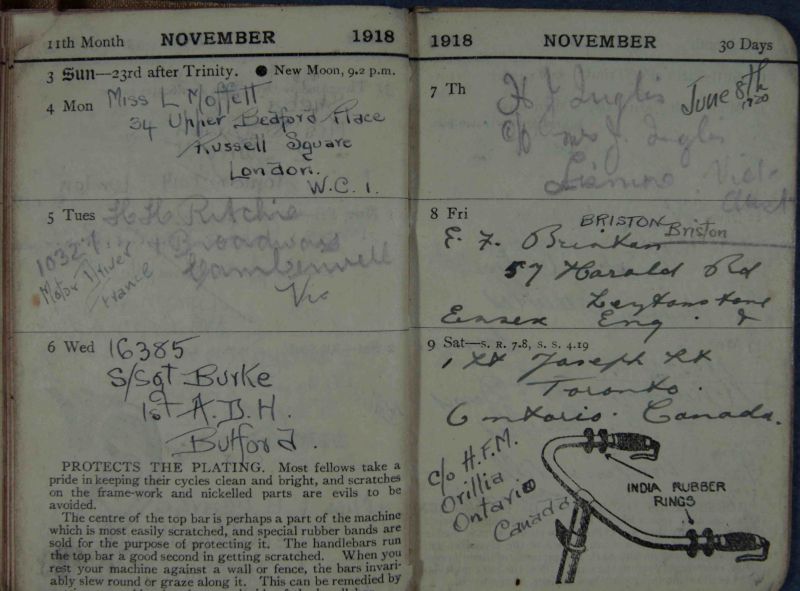 11th Month NOVEMBER 1918
3 Sun—23rd after Trinity. ● New Moon, 9.2 p.m.
4 Mon Miss L Moffett
34 Upper Bedford Place
Russell Square
London.
W.C. 1.
5 Tues H H Ritchie
10327. 4 Broadway
Motor Driver Camberwell
France Vic
6 Wed 16385
S/Sgt Burke
1st A.D.H.
Bulford.
PROTECTS THE PLATING. Most fellows take a
pride in keeping their cycles clean and bright, and scratches
on the frame-work and nickelled parts are evils to be
avoided.
The centre of the top bar is perhaps a part of the machine
which is most easily scratched, and special rubber bands are
sold for the purpose of protecting it. The handlebars run
the top bar a good second in getting scratched. When you
rest your machine against a wall or fence, the bars invari-
ably slew round or graze along it. This can be remedied by
1918 NOVEMBER 30 Days
7 Th H J Inglis June 8th 1920
c/o Mr J. Inglis
Lismore Vict
Aust
8 Fri BRISTON Briston
E. F. Brinton
57 Harold Rd
Leytonstone
Essex Eng.
9 Sat—S. R. 7.8, S. S. 4.19
1 St Joseph St
Toronto.
Ontario. Canada.
c/o H.F.M.
Orillia
Ontario
Canada
INDIA RUBBER
RINGS